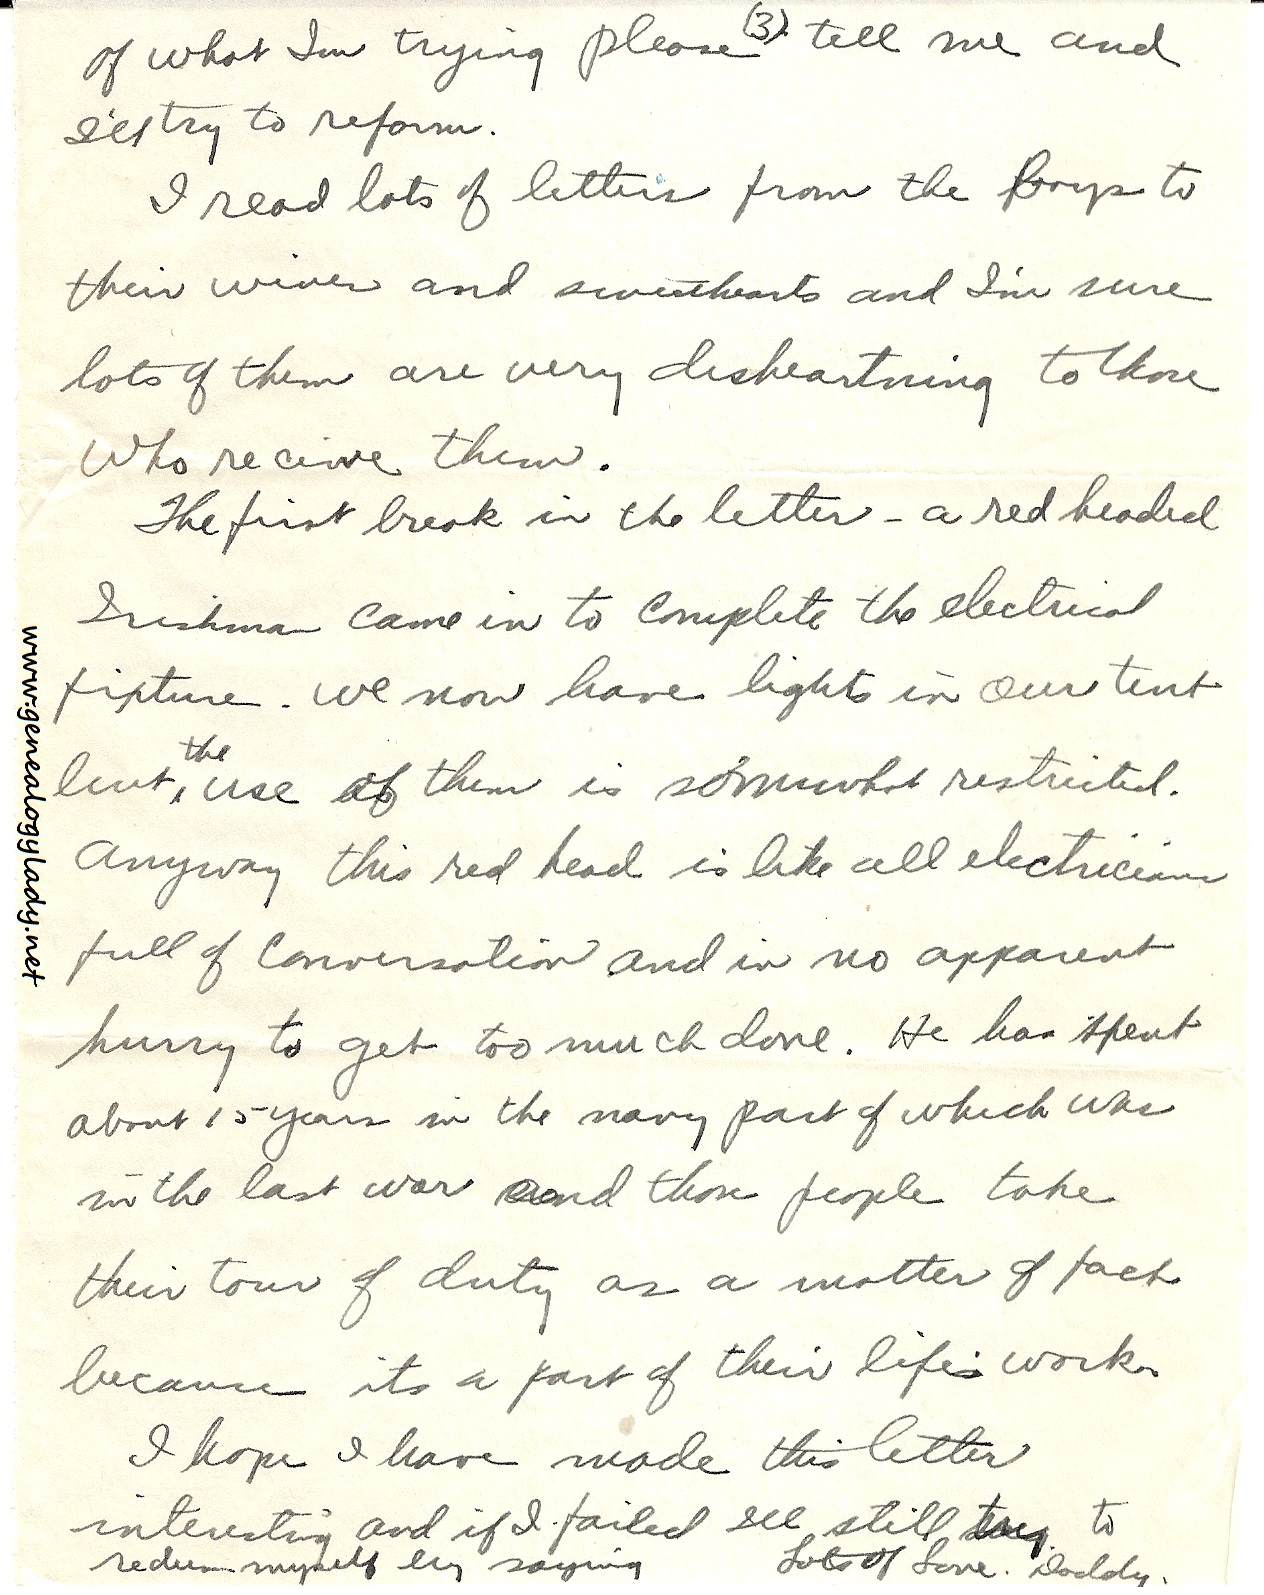 (3)
of what I'm trying please tell me and
I'll try to reform.
I read lots of letters from the Boys to
their wives and sweethearts and I'm sure
lots of them are very disheartning to those
who recive them.
The first break in the letter - a red headed
Irishman came in to complete the electrical
fixture. We now have lights in our tent
but, the use of them is somewhat restricted.
Anyway this red head is like all electricians
full of conversation and in no apparent
hurry to get too much done. He has spent
about 15 years in the navy part of which was
in the last war and those people take
their tour of duty as a matter of fact
because its a part of their life's work.
I hope I have made this letter
interesting and if I failed Ill still try to
redeem myself by saying Lots of Love. Daddy.
www.genealogylady.net